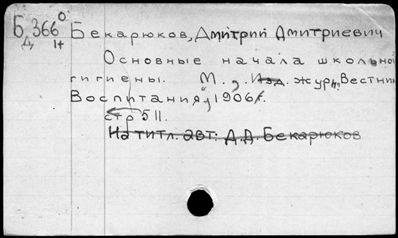 Б 366 О Бекарюков, Дмитрий Дмитриевич
Д 1+
Основные начала школьной
гигиены. М., Изд. журн. Вестник
Воспитания, 1906 г.
стр 511.
На титл. авт: Д.Д. Бекарюков